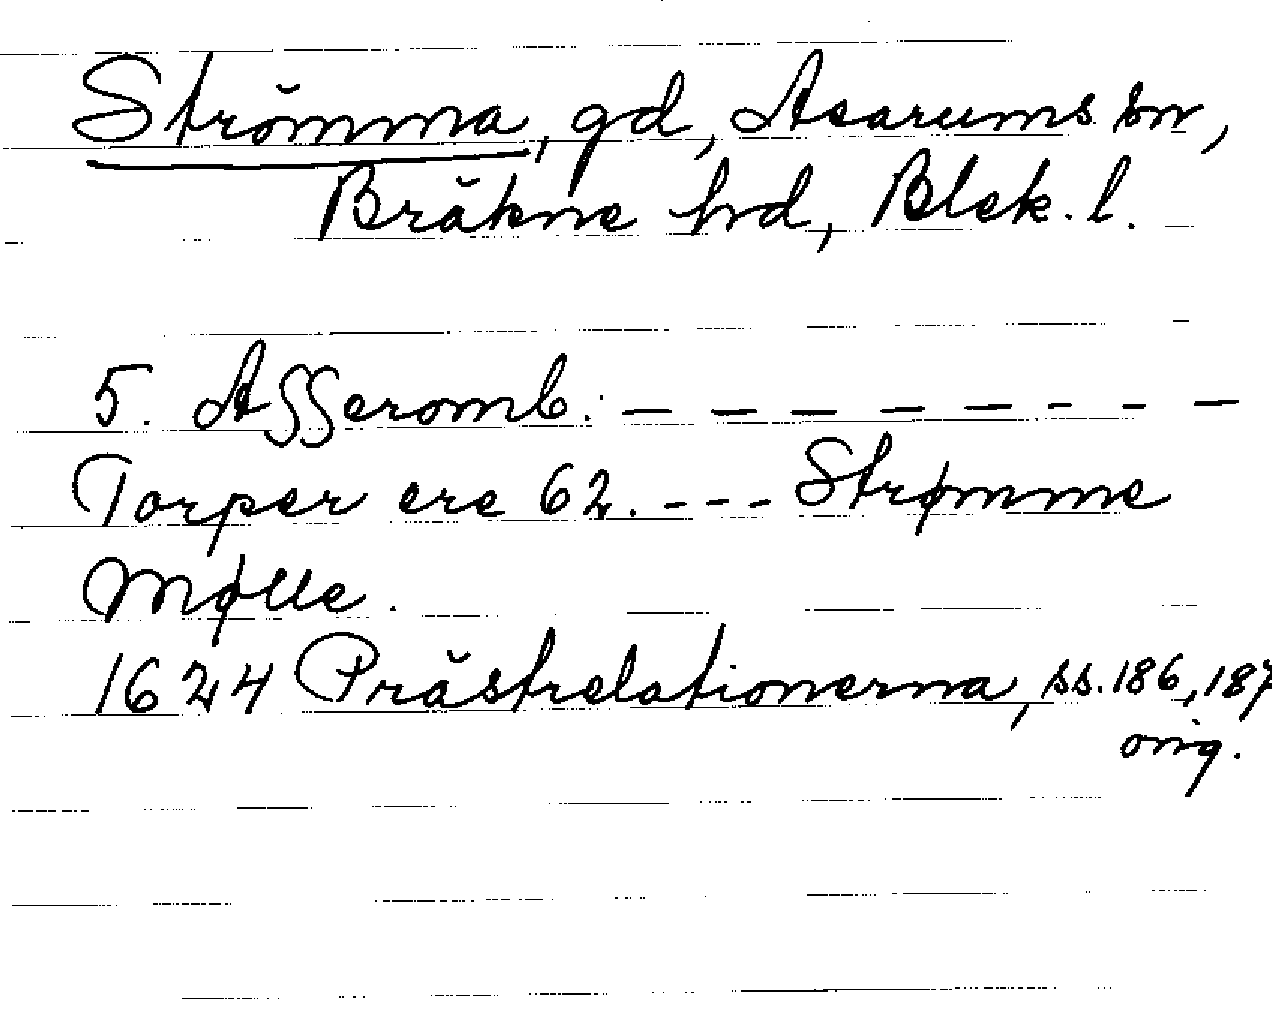 Strömma, gd, Asarums sn,
Bräkne hd, Blek. l.
5. Asseromb: — — — — — - - —
Torper ere 62. - - - Strømme
Mølle.
1624 Prästrelationerna, ss. 186, 187
orig.